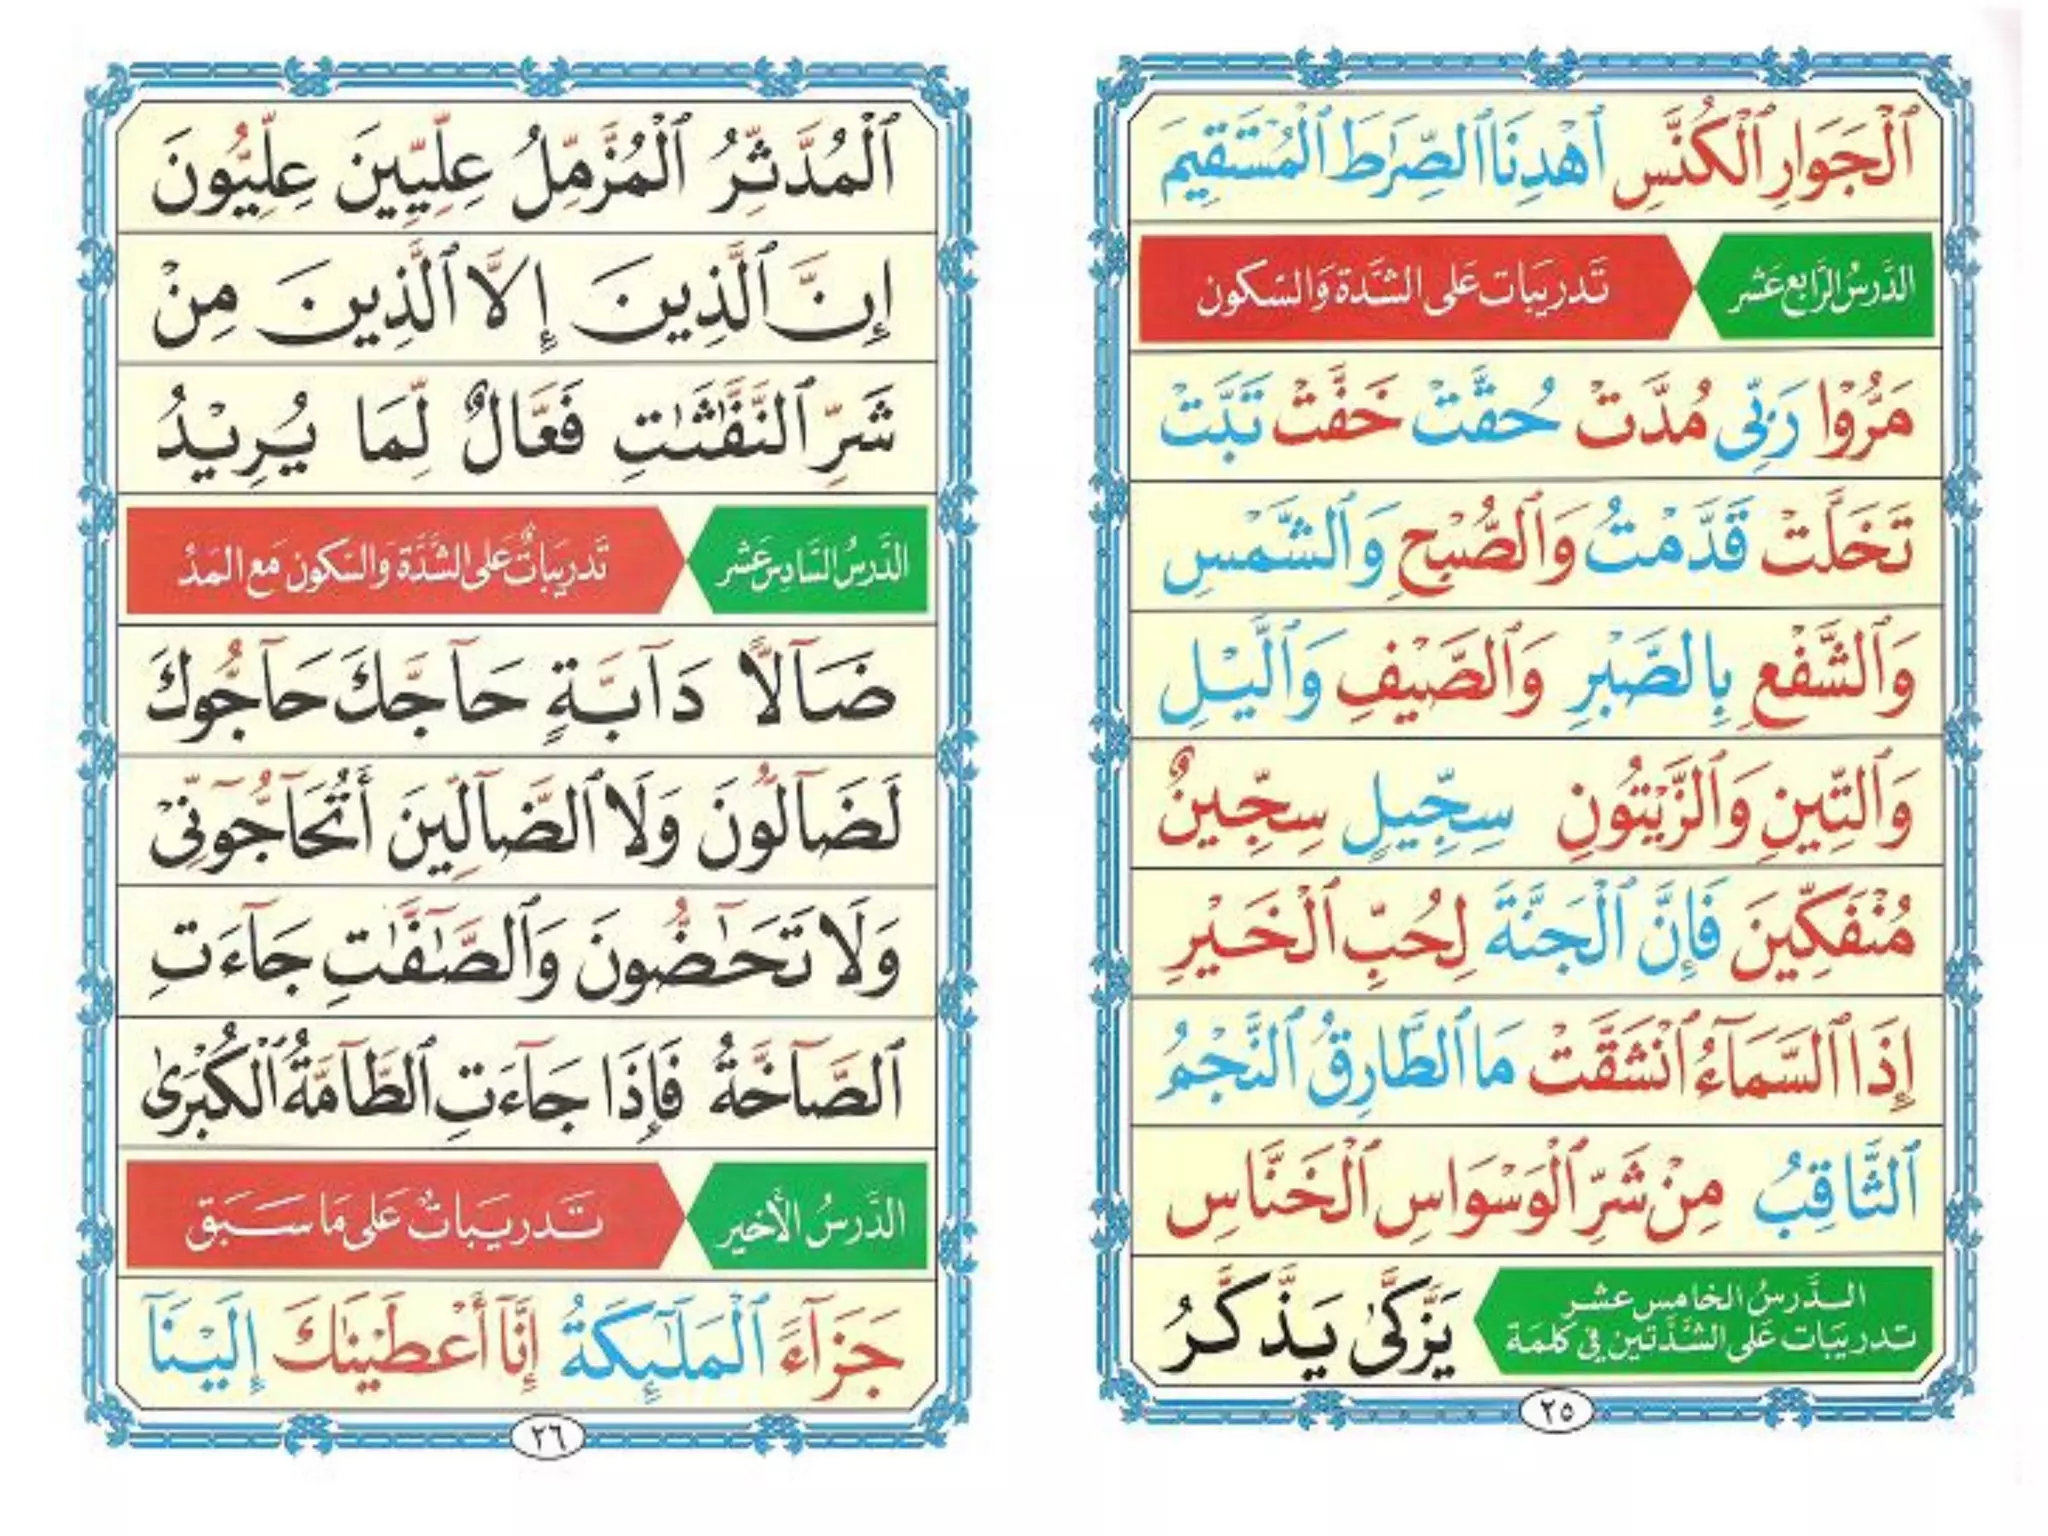 ٱلْجَوَارِ ٱلْكُنَّسِ ٱهْدِنَا ٱلصِّرَٰطَ ٱلْمُسْتَقِيمَ
الدَّرسُ الرَّابع عَشر تَدريبَات عَلى الشَّدة وَالسكون
مَرُّوا۟ رَبِّى مُدَّتْ حُقَّتْ خَفَّتْ تَبَّتْ
تَخَلَّتْ قَدَّمْتُ وَٱلصُّبْحِ وَٱلشَّمْسِ
وَٱلشَّفْعِ بِٱلصَّبْرِ وَٱلصَّيْفِ وَٱلَّيْلِ
وَٱلتِّينِ وَٱلزَّيْتُونِ سِجِّيلٍ سِجِّينٌ
مُنفَكِّينَ فَإِنَّ ٱلْجَنَّةَ لِحُبِّ ٱلْخَيْرِ
إِذَا ٱلسَّمَآءُ ٱنشَقَّتْ مَا ٱلطَّارِقُ ٱلنَّجْمُ
ٱلثَّاقِبُ مِن شَرِّ ٱلْوَسْوَاسِ ٱلْخَنَّاسِ
الدَّرسُ الخامس عشر
تدريبَات عَلى الشَّدَّتين في كلمَة
يَزَّكَّىٰ يَذَّكَّرُ
٢٥
ٱلْمُدَّثِّرُ ٱلْمُزَّمِّلُ عِلِّيِّينَ عِلِّيُّونَ
إِنَّ ٱلَّذِينَ إِلَّا ٱلَّذِينَ مِنْ
شَرِّ ٱلنَّفَّٰثَٰتِ فَعَّالٌ لِّمَا يُرِيْدُ
الدَّرسُ السَّادس عَشر تَدريبَاتٌ عَلى الشَّدَّة وَالسكون مَع المَدْ
ضَآلًّا دَآبَّةٍ حَآجَّكَ حَآجُّوكَ
لَضَآلُّونَ وَلَا ٱلضَّآلِّينَ أَتُحَآجُّوٓنِّى
وَلَا تَحَٰٓضُّونَ وَٱلصَّٰٓفَّٰتِ جَآءَتِ
ٱلصَّآخَّةُ فَإِذَا جَآءَتِ ٱلطَّآمَّةُ ٱلْكُبْرَىٰ
الدَّرسُ الأخير تَدريَباتٌ عَلى مَا سَبَق
جَزَآءً ٱلْمَلَٰٓئِكَةُ إِنَّآ أَعْطَيْنَٰكَ إِلَيْنَآ
٢٦